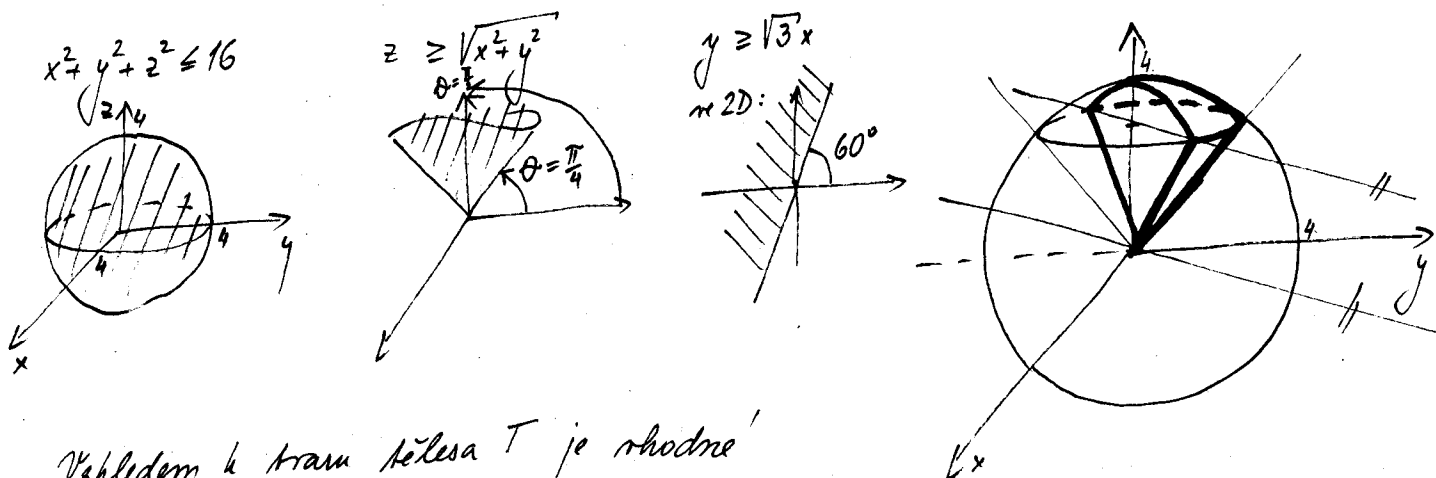 x²+y²+z² ≤ 16
z
4
4
4
y
x
z ≥ √(x²+y²)
θ = π/4
y ≥ √3 x
ve 2D:
60°
4
4
y
x
Vzhledem k tvaru tělesa T je vhodné